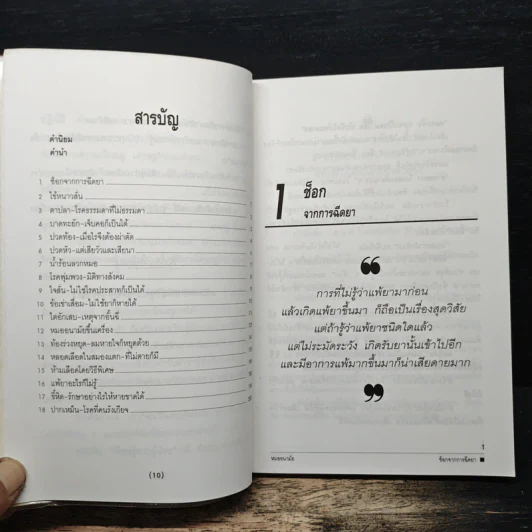 สารบัญ
คำนิยม
คำนำ
1 ช็อกจากการฉีดยา
2 ไข้หนาวสั่น
3 ตาปลา-โรคธรรมดาที่ไม่ธรรมดา
4 บาดทะยัก-เจ็บคอก็เป็นได้
5 ปวดท้อง-เมื่อไรจึงต้องผ่าตัด
6 ปวดหัว-แต่เสียวัวและเสียนา
7 น้ำร้อนลวกหมอ
8 โรคพุ่มพวง-มิติทางสังคม
9 ใจสั่น-ไม่ใช่โรคประสาทก็เป็นได้
10 ข้อเข่าเสื่อม-ไม่ใช้ยาก็หายได้
11 ไตอักเสบ-เหตุจากอั้นฉี่
12 หมออนามัยขึ้นเครื่อง
13 ท้องร่วงหยุด-ลมหายใจก็หยุดด้วย
14 หลอดเลือดในสมองแตก-ที่ไม่ตายก็มี
15 ห้ามเลือดโดยวิธีพิเศษ
16 แพ้ยาอะไรก็ไม่รู้
17 ขี้หิด-รักษาอย่างไรให้หายขาดได้
18 ปากเหม็น-โรคที่คนรังเกียจ
(10)
1 ช็อก
จากการฉีดยา
❝
การที่ไม่รู้ว่าแพ้ยามาก่อน
แล้วเกิดแพ้ยาขึ้นมา ก็ถือเป็นเรื่องสุดวิสัย
แต่ถ้ารู้ว่าแพ้ยาชนิดใดแล้ว
แต่ไม่ระมัดระวัง เกิดรับยานั้นเข้าไปอีก
และมีอาการแพ้มากขึ้นมาก็น่าเสียดายมาก
❞
1
หมออนามัย
ช็อกจากการฉีดยา